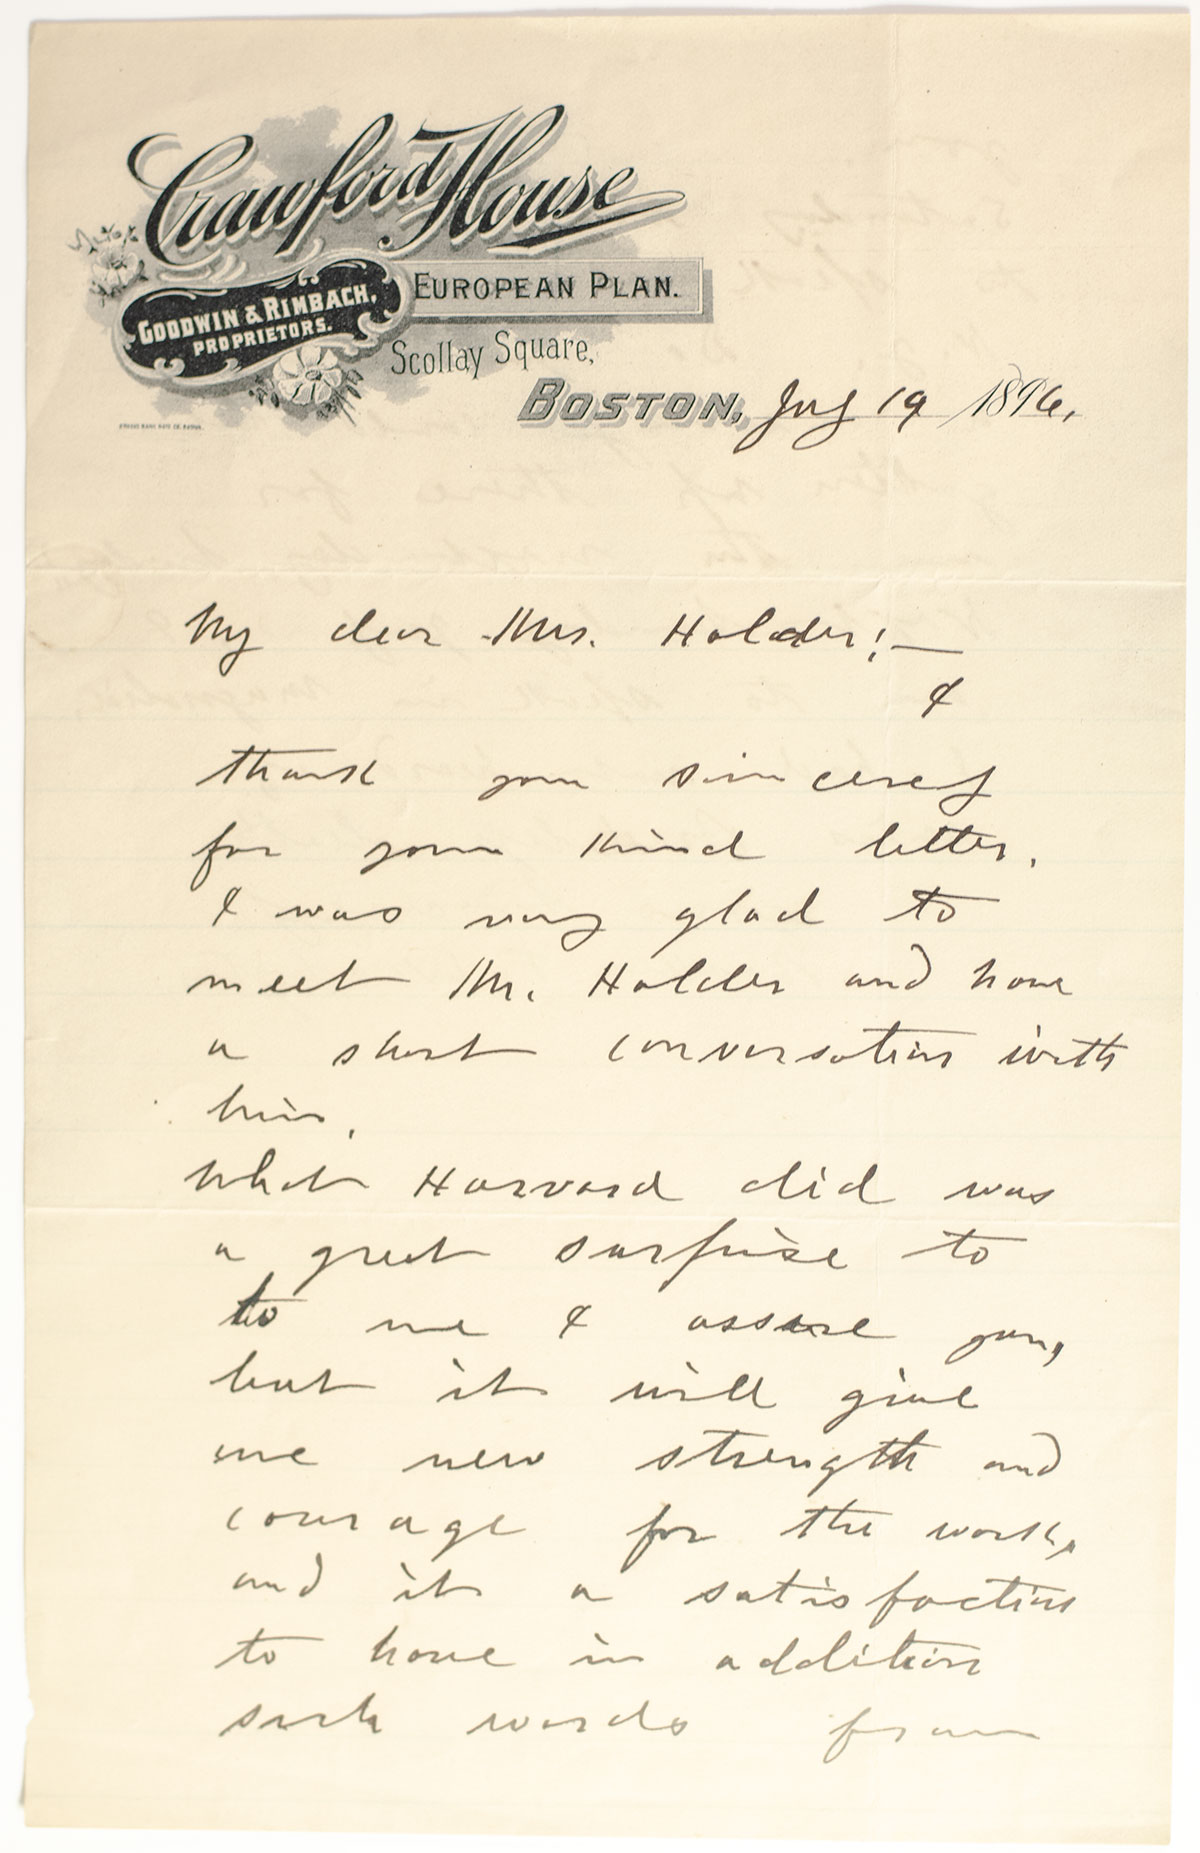 Crawford House
EUROPEAN PLAN.
GOODWIN & RIMBACH,
PROPRIETORS.
Scollay Square,
BOSTON, July 19 1896.
My dear Mrs. Holder:—
I
thank you sincerely
for your kind letter.
I was very glad to
meet Mr. Holder and have
a short conversation with
him.
What Harvard did was
a great surprise to
to me I assure you,
but it will give
me new strength and
courage for the work,
and it a satisfaction
to have in addition
such words from